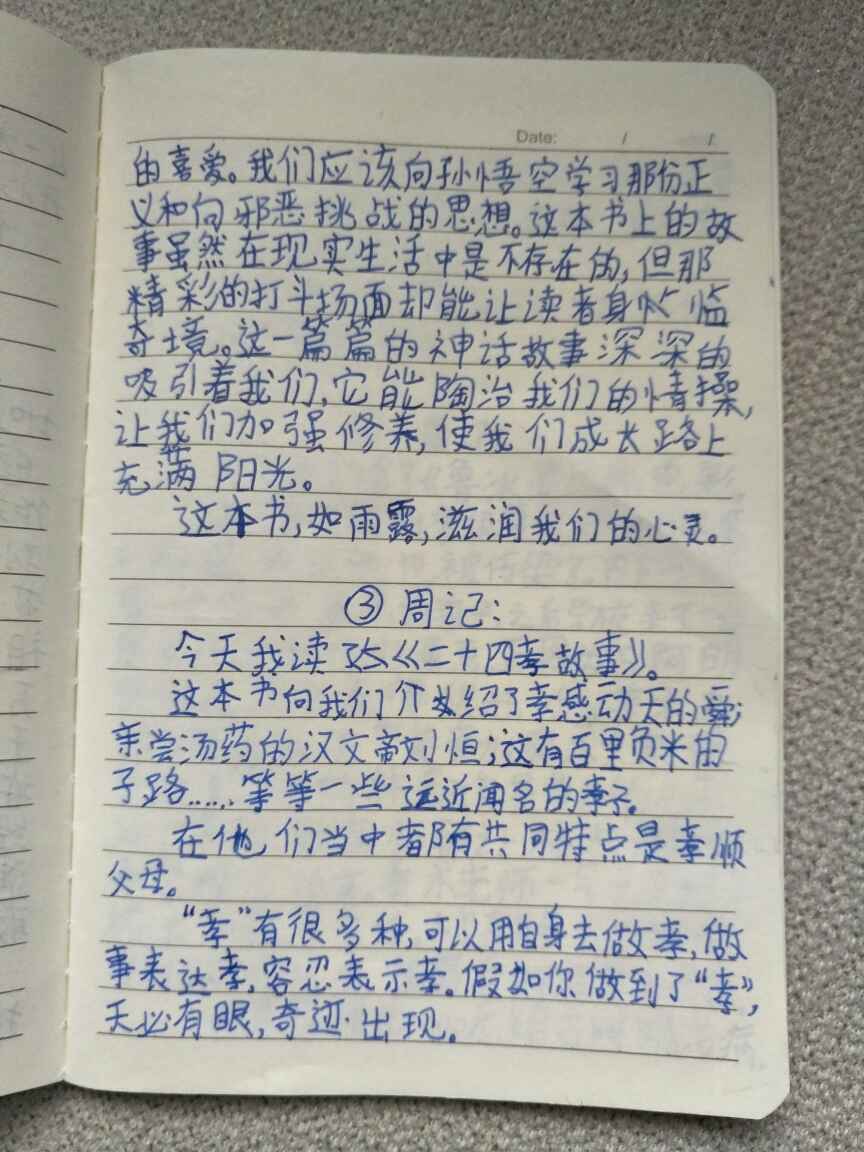 Date: / /
的喜爱。我们应该向孙悟空学习那份正
义和向邪恶挑战的思想。这本书上的故
事虽然在现实生活中是不存在的,但那
精彩的打斗场面却能让读者身临
奇境。这一篇篇的神话故事深深的
吸引着我们,它能陶冶我们的情操,
让我们加强修养,使我们成长路上
充满阳光。
这本书,如雨露,滋润我们的心灵。
③周记:
今天我读了《二十四孝故事》。
这本书向我们介绍了孝感动天的舜;
亲尝汤药的汉文帝刘恒;这有百里负米的
子路……等等一些远近闻名的孝子。
在他们当中都有共同特点是孝顺
父母。
“孝”有很多种,可以用自身去做孝,做
事表达孝,容忍表示孝。假如你做到了“孝”,
天必有眼,奇迹出现。